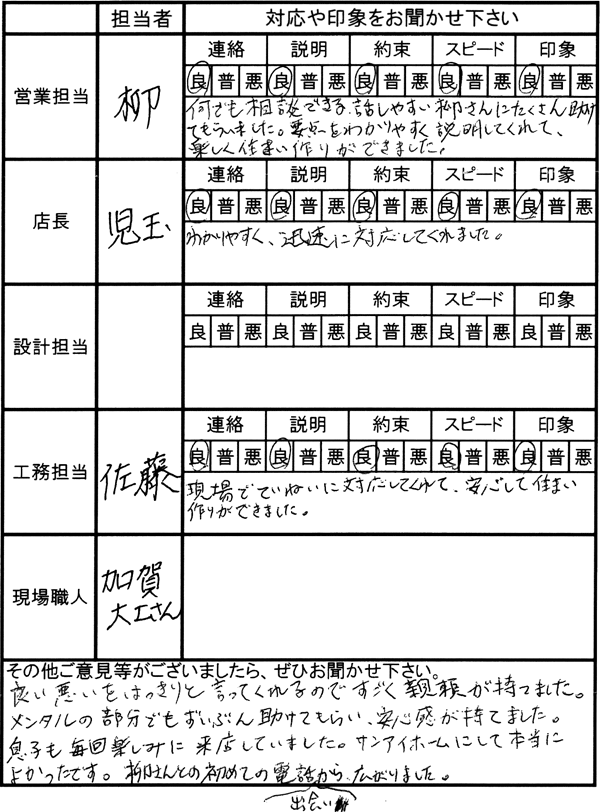 担当者 対応や印象をお聞かせ下さい
営業担当 柳
連絡 説明 約束 スピード 印象
良 普 悪 良 普 悪 良 普 悪 良 普 悪 良 普 悪
何でも相談できる、話しやすい柳さんにたくさん助け
てもらいました。要点をわかりやすく説明してくれて、
楽しく住まい作りができました!
店長 児玉
連絡 説明 約束 スピード 印象
良 普 悪 良 普 悪 良 普 悪 良 普 悪 良 普 悪
わかりやすく、迅速に対応してくれました。
設計担当
連絡 説明 約束 スピード 印象
良 普 悪 良 普 悪 良 普 悪 良 普 悪 良 普 悪
工務担当 佐藤
連絡 説明 約束 スピード 印象
良 普 悪 良 普 悪 良 普 悪 良 普 悪 良 普 悪
現場でていねいに対応してくれて、安心して住まい
作りができました。
現場職人 加賀
大工さん
その他ご意見等がございましたら、ぜひお聞かせ下さい。
良い悪いをはっきりと言ってくれるのですごく親頼が持てました。
メンタルの部分でもずいぶん助けてもらい、安心感が持てました。
息子も毎回楽しみに来店していました。サンアイホームにして本当に
よかったです。柳さんとの初めての電話から広がりました。
出会い